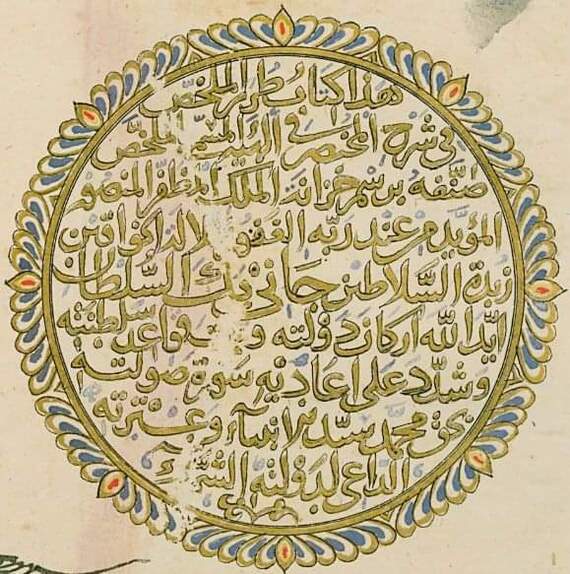 هذا كتاب طراز الملخص
في شرح المختصر في الهيئة المسمى الملخص
صنفه برسم خزانة الملك المظفر المنصور
المؤيد من عند ربه الغفور جلال الدنيا والدين
زبدة السلاطين جاني بك السلطان
ايد الله اركان دولته وقواعد سلطنته
وشدد على اعاديه سورة صولته
بحق محمد سيد الانبياء وعترته
الداعي لدولته